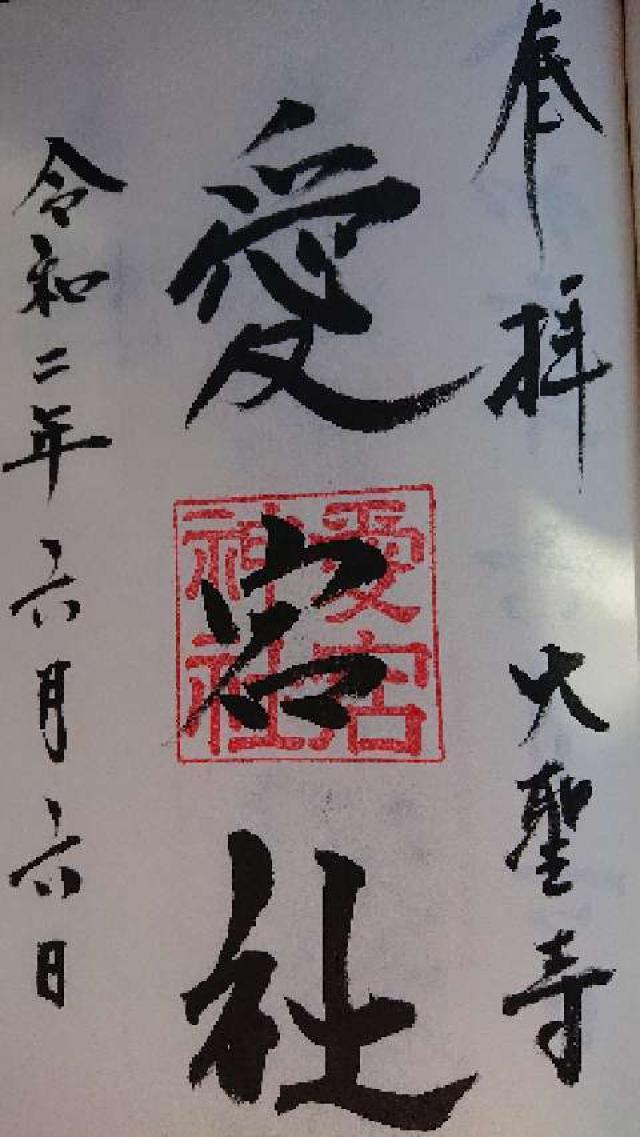 奉拝 大聖寺
愛宕社
愛宕神社
令和二年六月六日